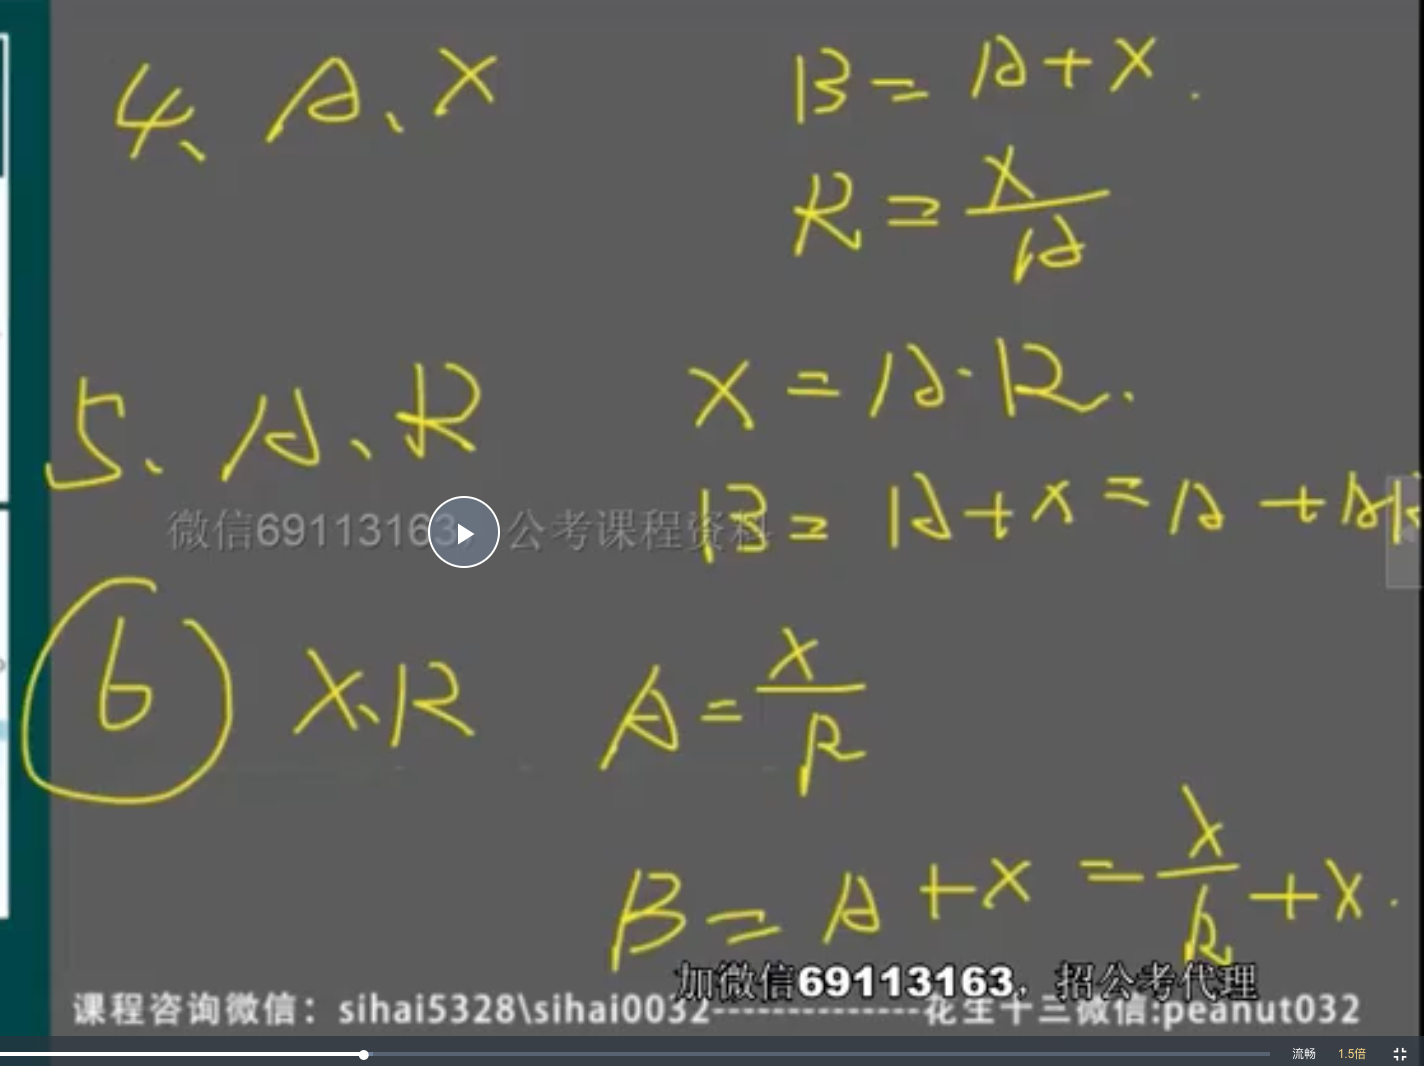 4、A、X
B = A + X.
R = X/A
5、A、R
X = A·R.
B = A + X = A + AR
微信69113163，公考课程资料
6 X、R
A = X/R
B = A + X = X/R + X.
加微信69113163，招公考代理
课程咨询微信：sihai5328\sihai0032--------------花生十三微信:peanut032
流畅 1.5倍